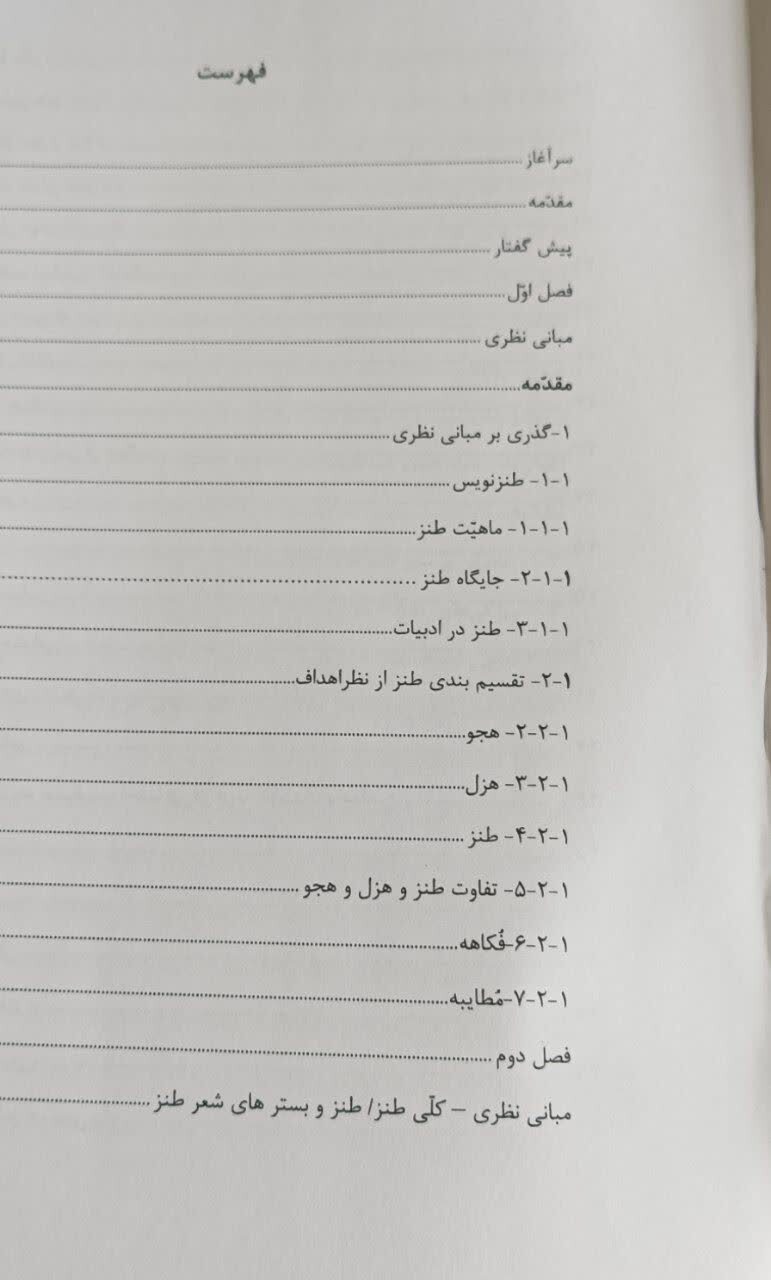 فهرست
سرآغاز
مقدّمه
پیش گفتار
فصل اوّل
مبانی نظری
مقدّمه
۱-گذری بر مبانی نظری
۱-۱- طنزنویس
۱-۱-۱- ماهیّت طنز
۱-۱-۲- جایگاه طنز
۱-۱-۳- طنز در ادبیات
۱-۲- تقسیم بندی طنز از نظراهداف
۱-۲-۲- هجو
۱-۲-۳- هزل
۱-۲-۴- طنز
۱-۲-۵- تفاوت طنز و هزل و هجو
۱-۲-۶-فُکاهه
۱-۲-۷-مُطایبه
فصل دوم
مبانی نظری – کلّی طنز/ طنز و بستر های شعر طنز